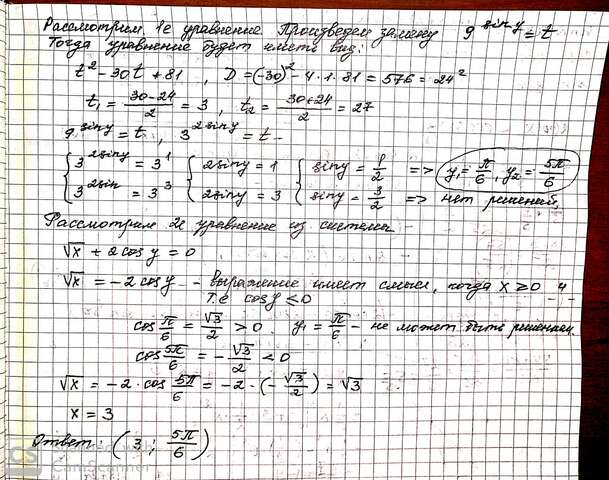 Рассмотрим 1е уравнение Произведем замену 9^sin y = t
Тогда уравнение будет иметь вид:
t² - 30t + 81 , D = (-30)² - 4·1·81 = 576 = 24²
t₁ = (30-24)/2 = 3 , t₂ = (30+24)/2 = 27
9^sin y = t , 3^2sin y = t -
{ 3^2sin y = 3¹ { 2sin y = 1 { sin y = 1/2 => y₁ = π/6 , y₂ = 5π/6
{ 3^2sin = 3³ { 2sin y = 3 { sin y = 3/2 => нет решений,
Рассмотрим 2е уравнение из системы
√x + 2cos y = 0
√x = -2cos y - выражение имеет смысл, когда x ≥ 0 и
т.е cos y < 0
cos π/6 = √3/2 > 0 . y₁ = π/6 - не может быть решением.
cos 5π/6 = -√3/2 < 0
√x = -2·cos 5π/6 = -2·(-√3/2) = √3
x = 3
Ответ: (3 ; 5π/6)
CS CamScanner